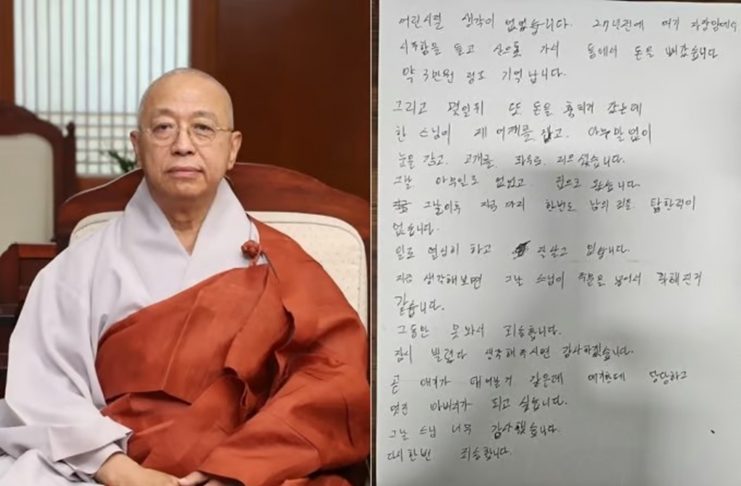 어린시절 생각이 없었습니다. 27년전에 여기 자장암에서
시주함을 들고 산으로 가서 통에서 돈을 빼갔습니다
약 3만원 정도 기억납니다.
그리고 몇일뒤 또 돈을 훔치러 갔는데
한 스님이 제 어깨를 잡고, 아무말없이
눈을 감고, 고개를 좌우로 저으셨습니다.
그날 아무일도 없었고 집으로 왔습니다.
그날이후 지금까지 한번도 남의 것을 탐한적이
없습니다.
일도 열심히 하고 잘 살고 있습니다.
지금 생각해보면 그날 스님이 주문을 넣어서 착해진거
같습니다.
그동안 못와서 죄송합니다.
잠시 빌렸다 생각해주시면 감사하겠습니다.
곧 애기가 태어날거 같은데 애기한테 당당하고
멋진 아버지가 되고 싶습니다.
그날 스님 너무 감사했습니다.
다시한번 죄송합니다.